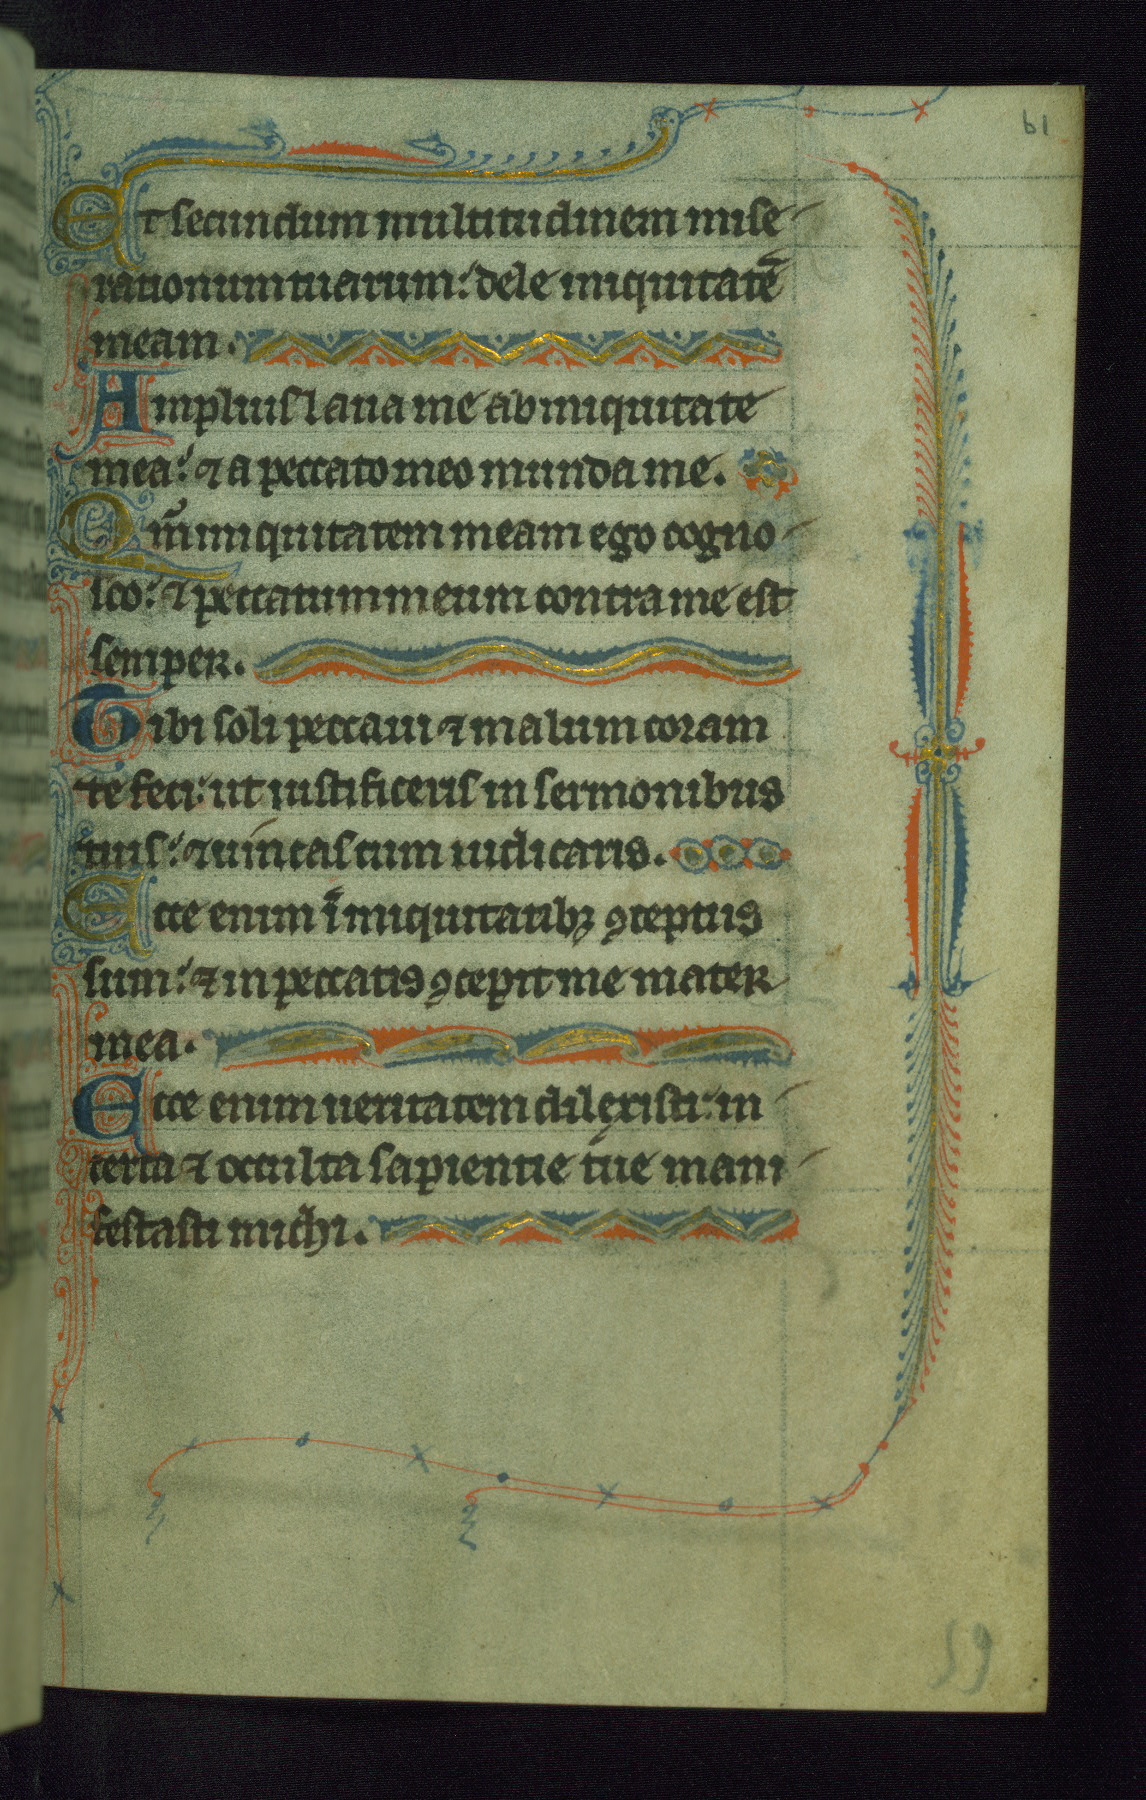 61
Et secundum multitudinem mise-
rationum tuarum: dele iniquitatē
meam.
Amplius laua me ab iniquitate
mea: ⁊ a peccato meo munda me.
Qm̄ iniquitatem meam ego cogno-
sco: ⁊ peccatum meum contra me est
semper.
Tibi soli peccaui ⁊ malum coram
te feci: ut iustificeris in sermonibus
tuis: ⁊ uincas cum iudicaris.
Ecce enim ī iniquitatibꝫ ꝯceptus
sum: ⁊ in peccatis ꝯcepit me mater
mea.
Ecce enim ueritatem dilexisti: in
certa ⁊ occulta sapientie tue mani-
festasti michi.
59